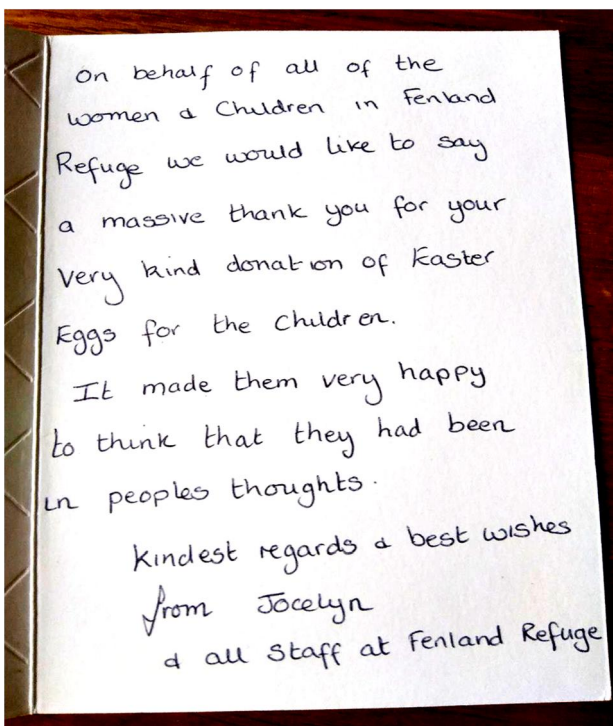 On behalf of all of the
women & Children in Fenland
Refuge we would like to say
a massive thank you for your
very kind donation of Easter
Eggs for the Children.
It made them very happy
to think that they had been
in peoples thoughts.
Kindest regards & best wishes
from Jocelyn
& all Staff at Fenland Refuge